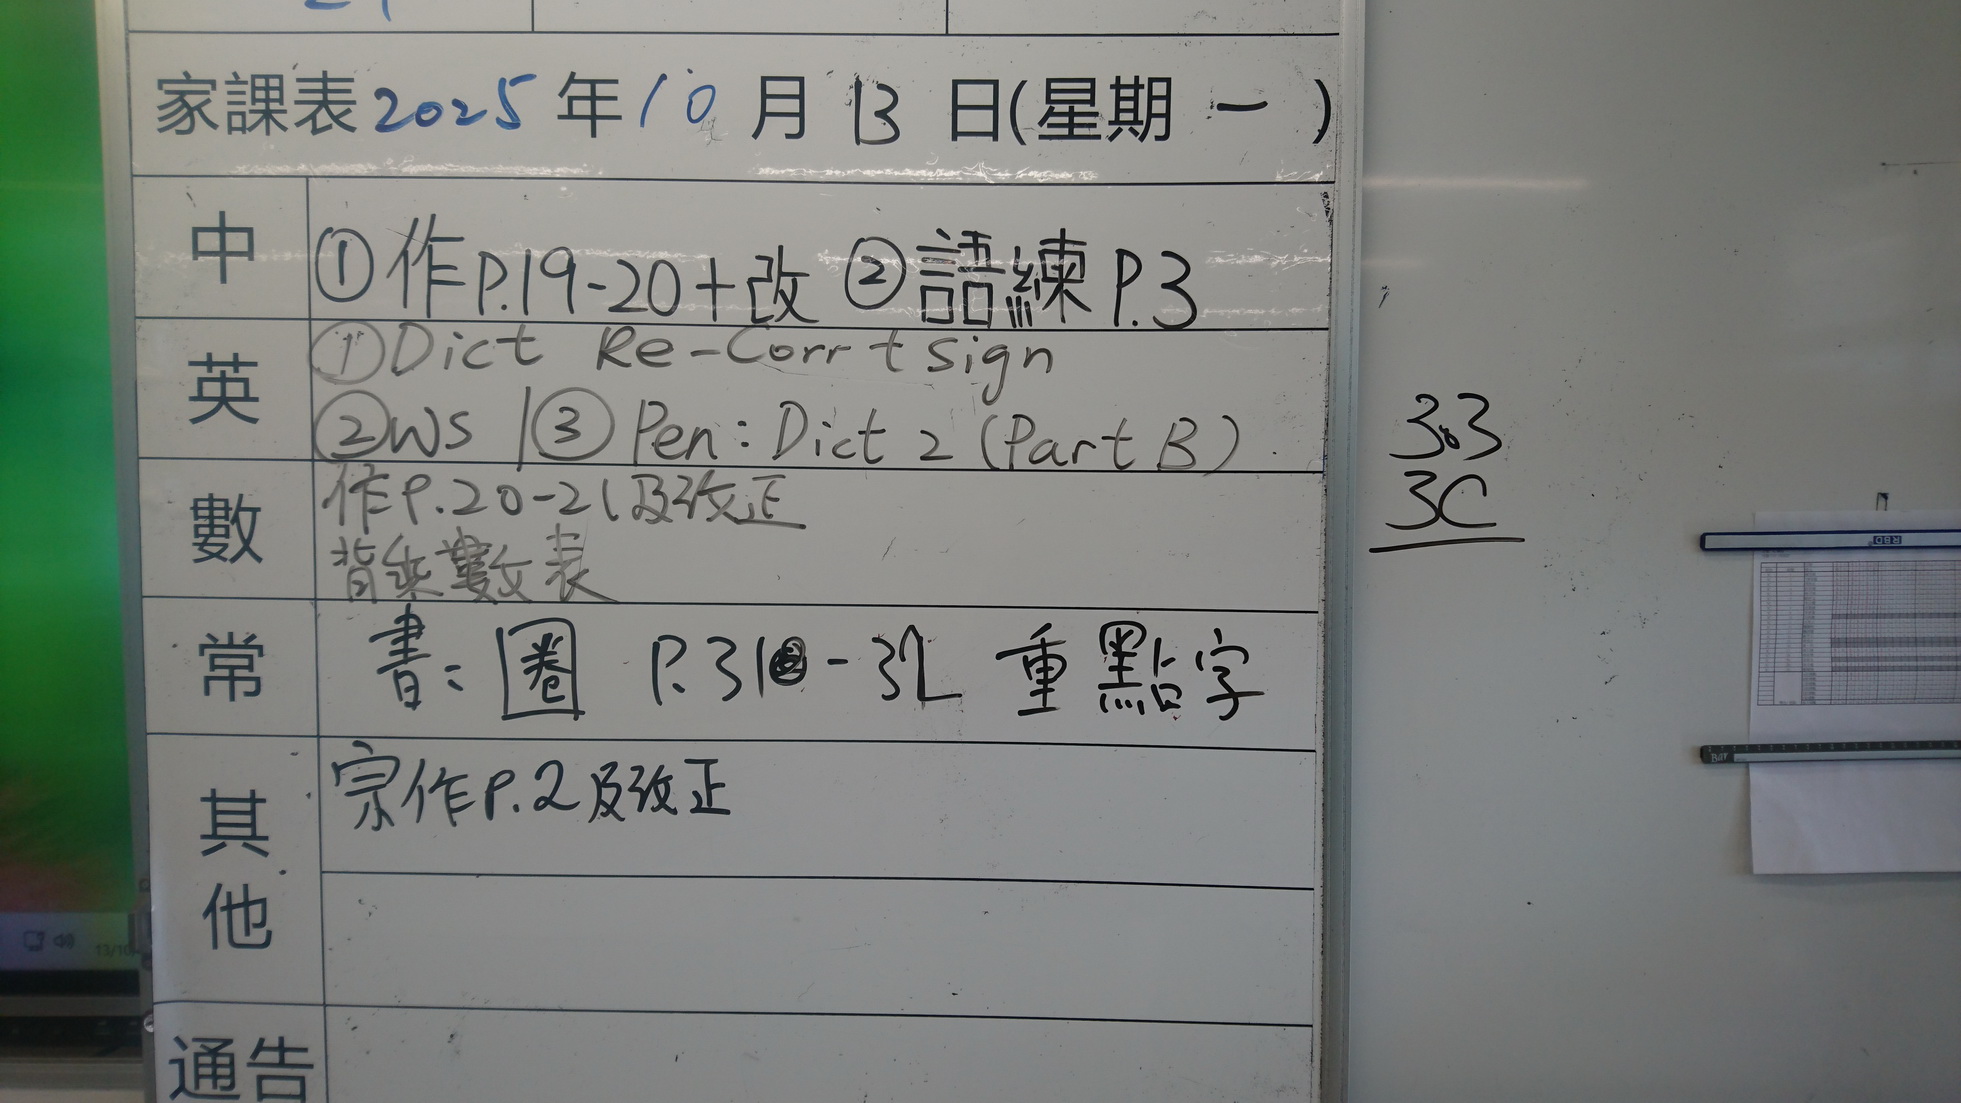 家課表2025年10月13日(星期一)
中 ①作P.19-20+改 ②語練P.3
英 ①Dict Re-Corr+sign
②WS|③Pen:Dict 2(Part B)
數 作P.20-21及改正
背乘數表
常 書:圈 P.31-32 重點字
其他 宗作P.2及改正
通告
3.3
3C
13/10